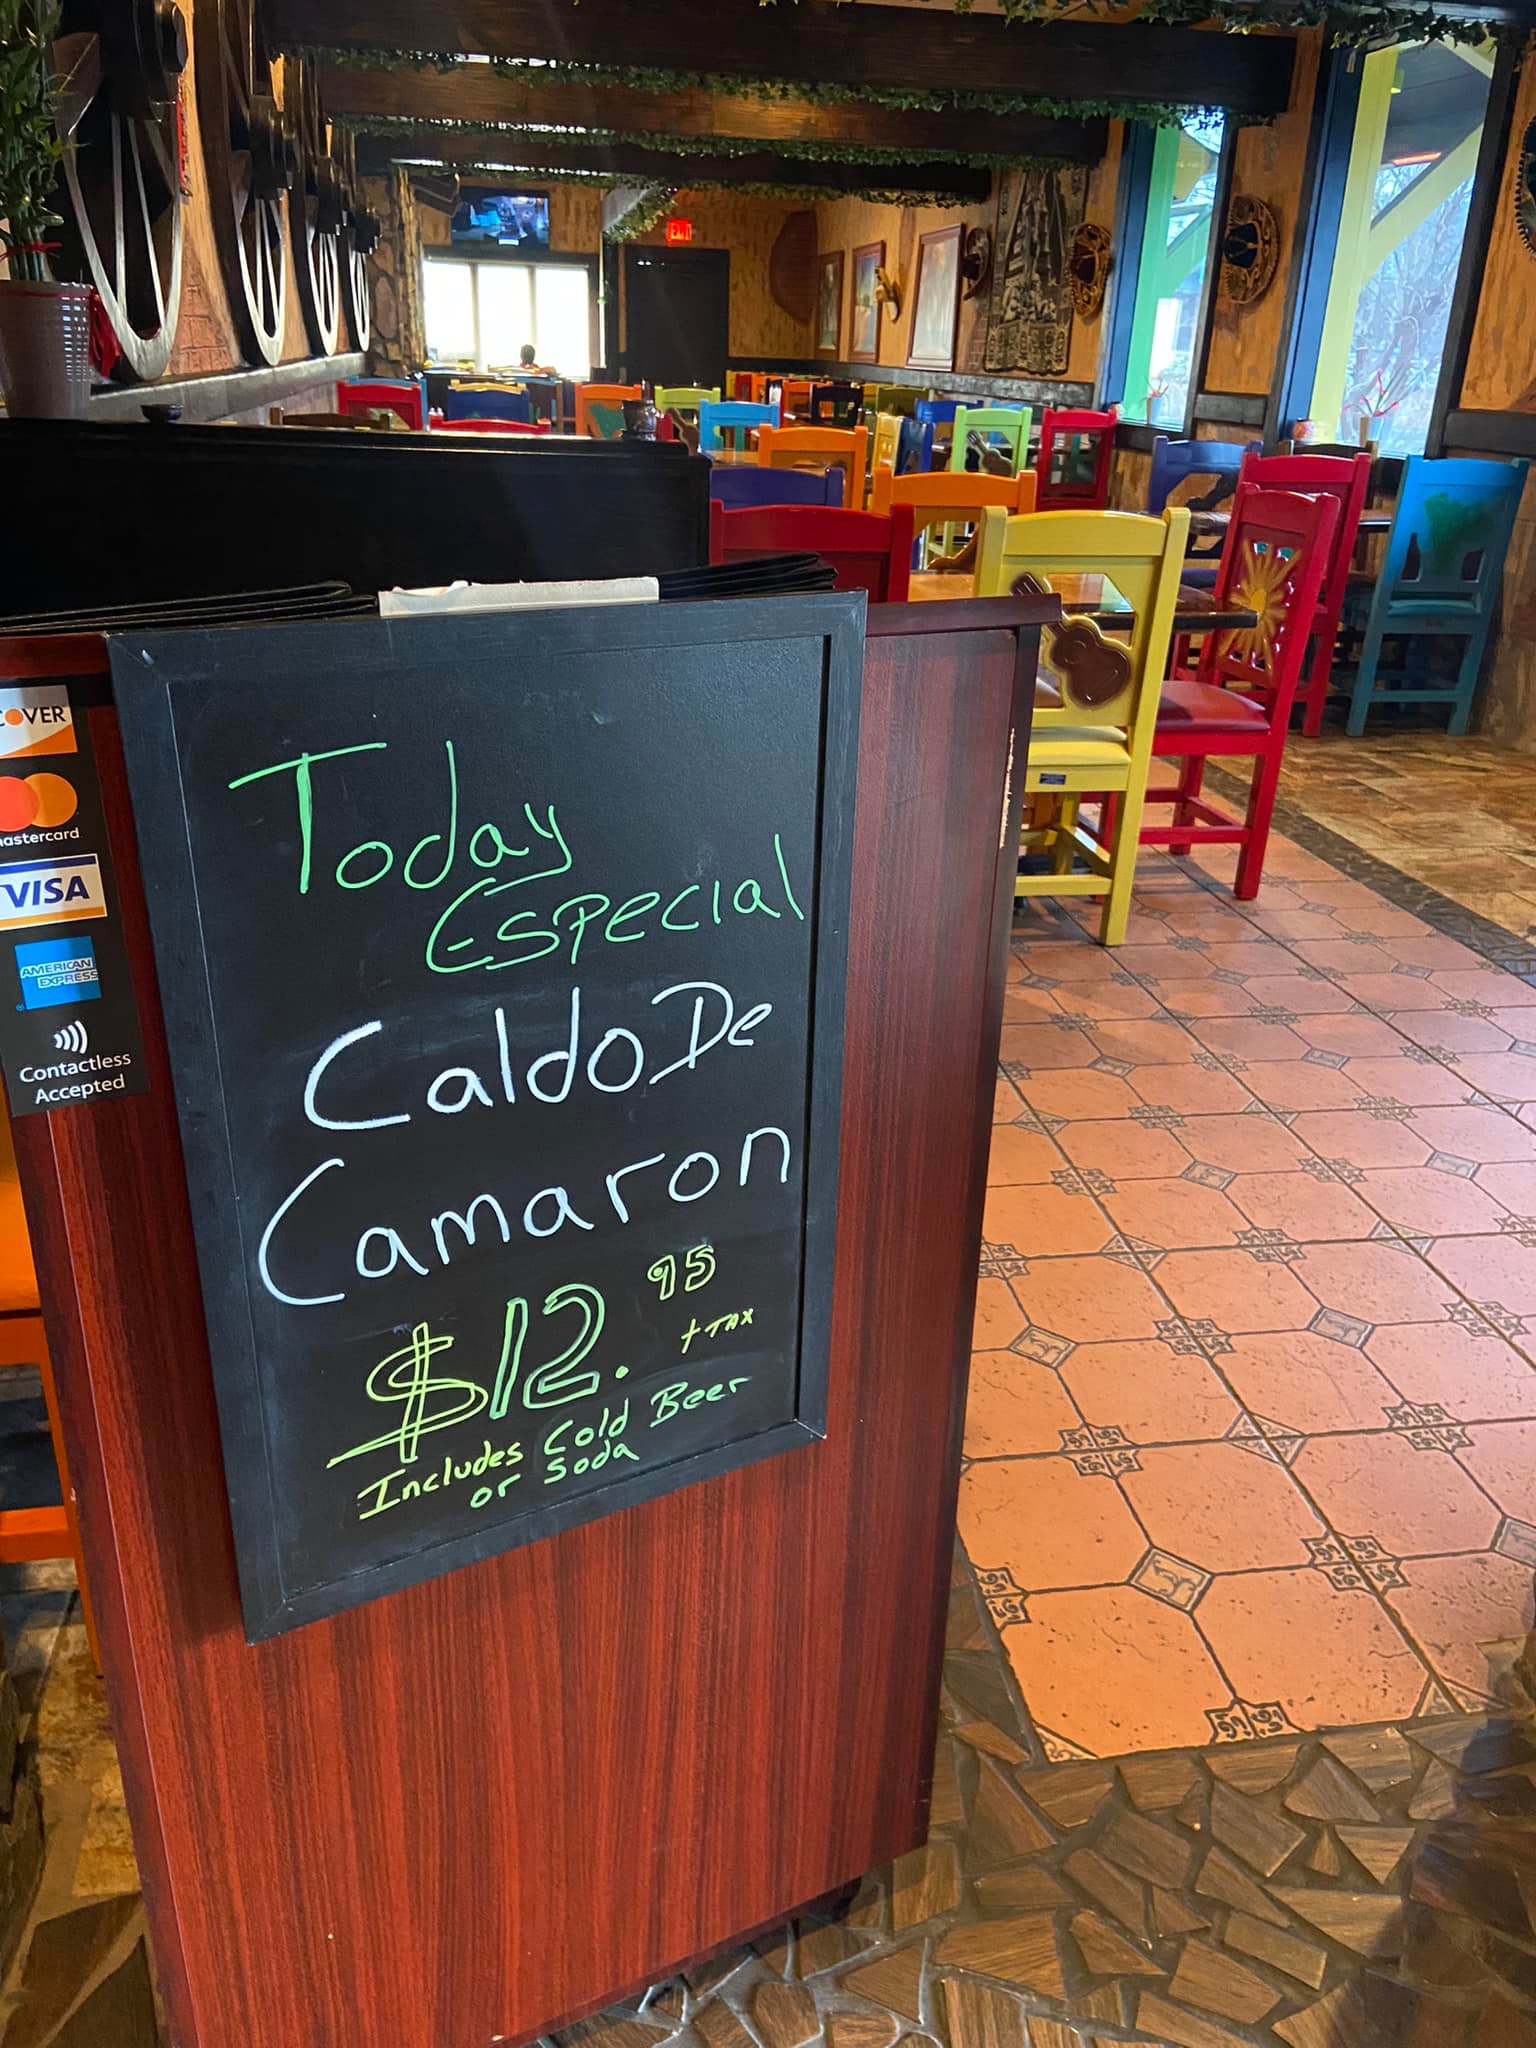 EXIT
Today
Especial
Caldo De
Camaron
$12.95
+ TAX
Includes Cold Beer
or Soda
COVER
mastercard
VISA
AMERICAN
EXPRESS
Contactless
Accepted